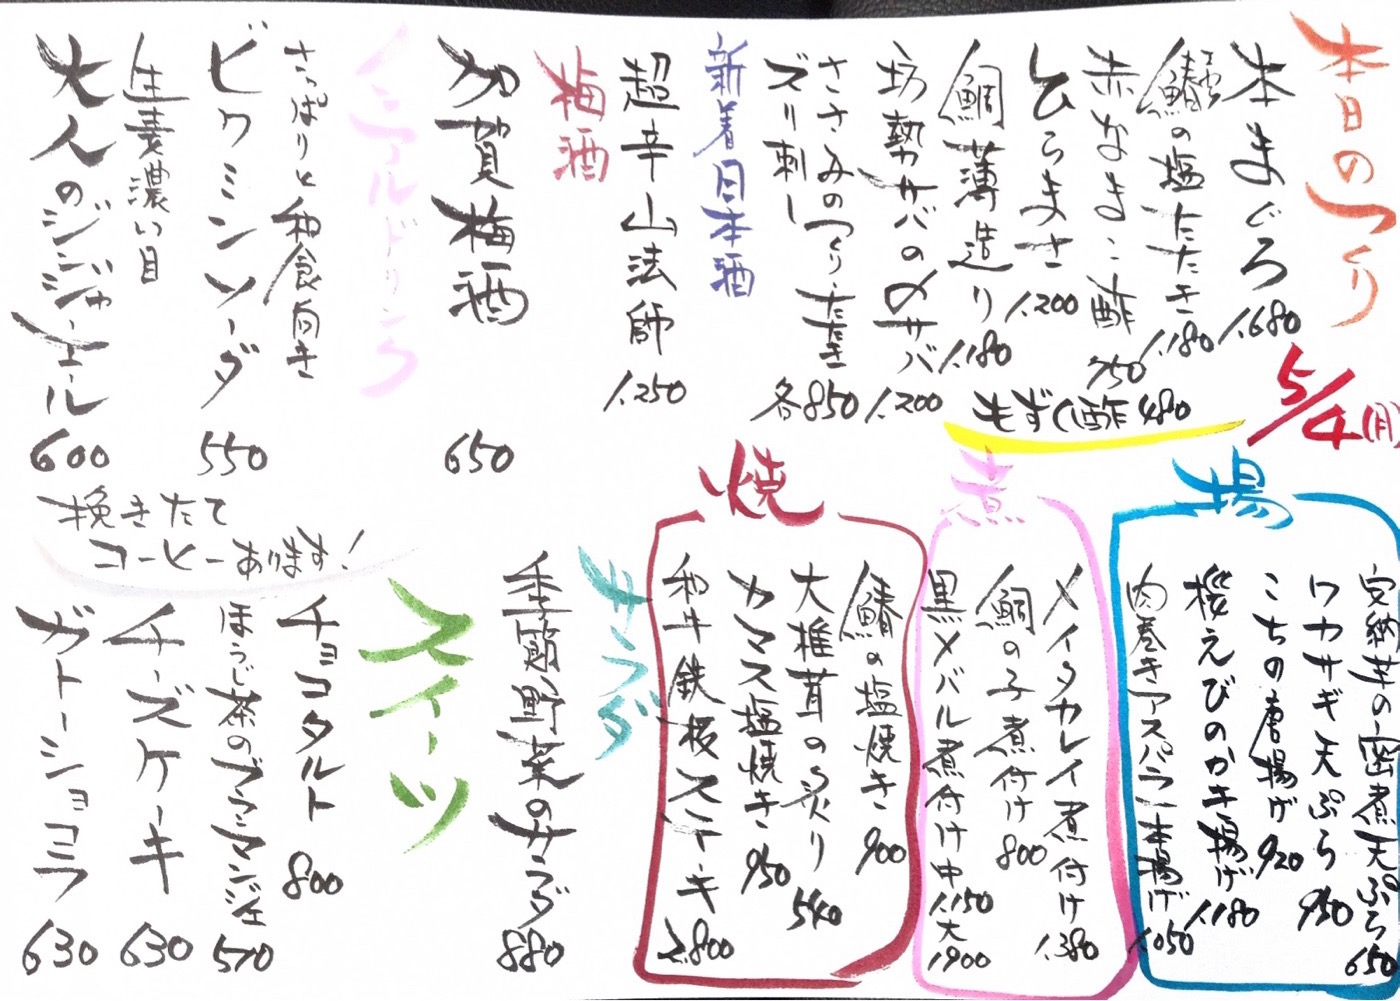 本日のつくり
5/4(月)
本まぐろ 1.680
鰆の塩たたき 1.180
赤なまこ酢 750
ひらまさ 1.200
鯛薄造り 1.180
坊勢サバの〆サバ 1.200
ささみのつくり、たたき
ズリ刺し 各850
もずく酢 480
新着日本酒
超辛山法師 1.250
梅酒
加賀梅酒 650
ノンアルドリンク
さっぱりと和食向き
ビワミンソーダ 550
生姜濃い目
大人のジンジャーエール 600
挽きたて
コーヒーあります!
揚
安納芋の蜜煮天ぷら 650
ワカサギ天ぷら 950
こちの唐揚げ 920
桜えびのかき揚げ 1.180
肉巻きアスパラ一本揚げ 1.050
煮
メイタカレイ煮付け 1.380
鯛の子煮付け 800
黒メバル煮付け 中1.150 大1.900
焼
鰆の塩焼き 900
大椎茸の炙り 540
カマス塩焼き 950
和牛鉄板ステーキ 2.800
サラダ
季節野菜のサラダ 880
スイーツ
チョコタルト 800
ほうじ茶のブランマンジェ 570
チーズケーキ 630
ガトーショコラ 630